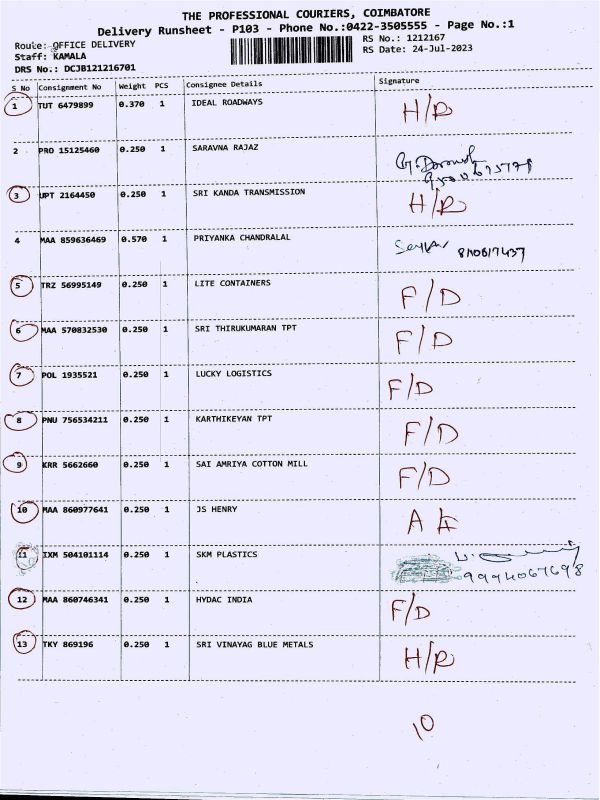 THE PROFESSIONAL COURIERS, COIMBATORE
Delivery Runsheet - P103 - Phone No.:0422-3505555 - Page No.:1
Route: OFFICE DELIVERY RS No.: 1212167
Staff: KAMALA RS Date: 24-Jul-2023
DRS No.: DCJB121216701
S No Consignment No Weight PCS Consignee Details Signature
1 TUT 6479899 0.370 1 IDEAL ROADWAYS H/R
2 PRO 15125460 0.250 1 SARAVNA RAJAZ
3 UPT 2164450 0.250 1 SRI KANDA TRANSMISSION H/R
4 MAA 859636469 0.570 1 PRIYANKA CHANDRALAL
5 TRZ 56995149 0.250 1 LITE CONTAINERS F/D
6 MAA 570832530 0.250 1 SRI THIRUKUMARAN TPT F/D
7 POL 1935521 0.250 1 LUCKY LOGISTICS F/D
8 PNU 756534211 0.250 1 KARTHIKEYAN TPT F/D
9 KRR 5662660 0.250 1 SAI AMRIYA COTTON MILL F/D
10 MAA 860977641 0.250 1 JS HENRY
11 IXM 504101114 0.250 1 SKM PLASTICS
9994067698
12 MAA 860746341 0.250 1 HYDAC INDIA F/D
13 TKY 869196 0.250 1 SRI VINAYAG BLUE METALS H/R
10